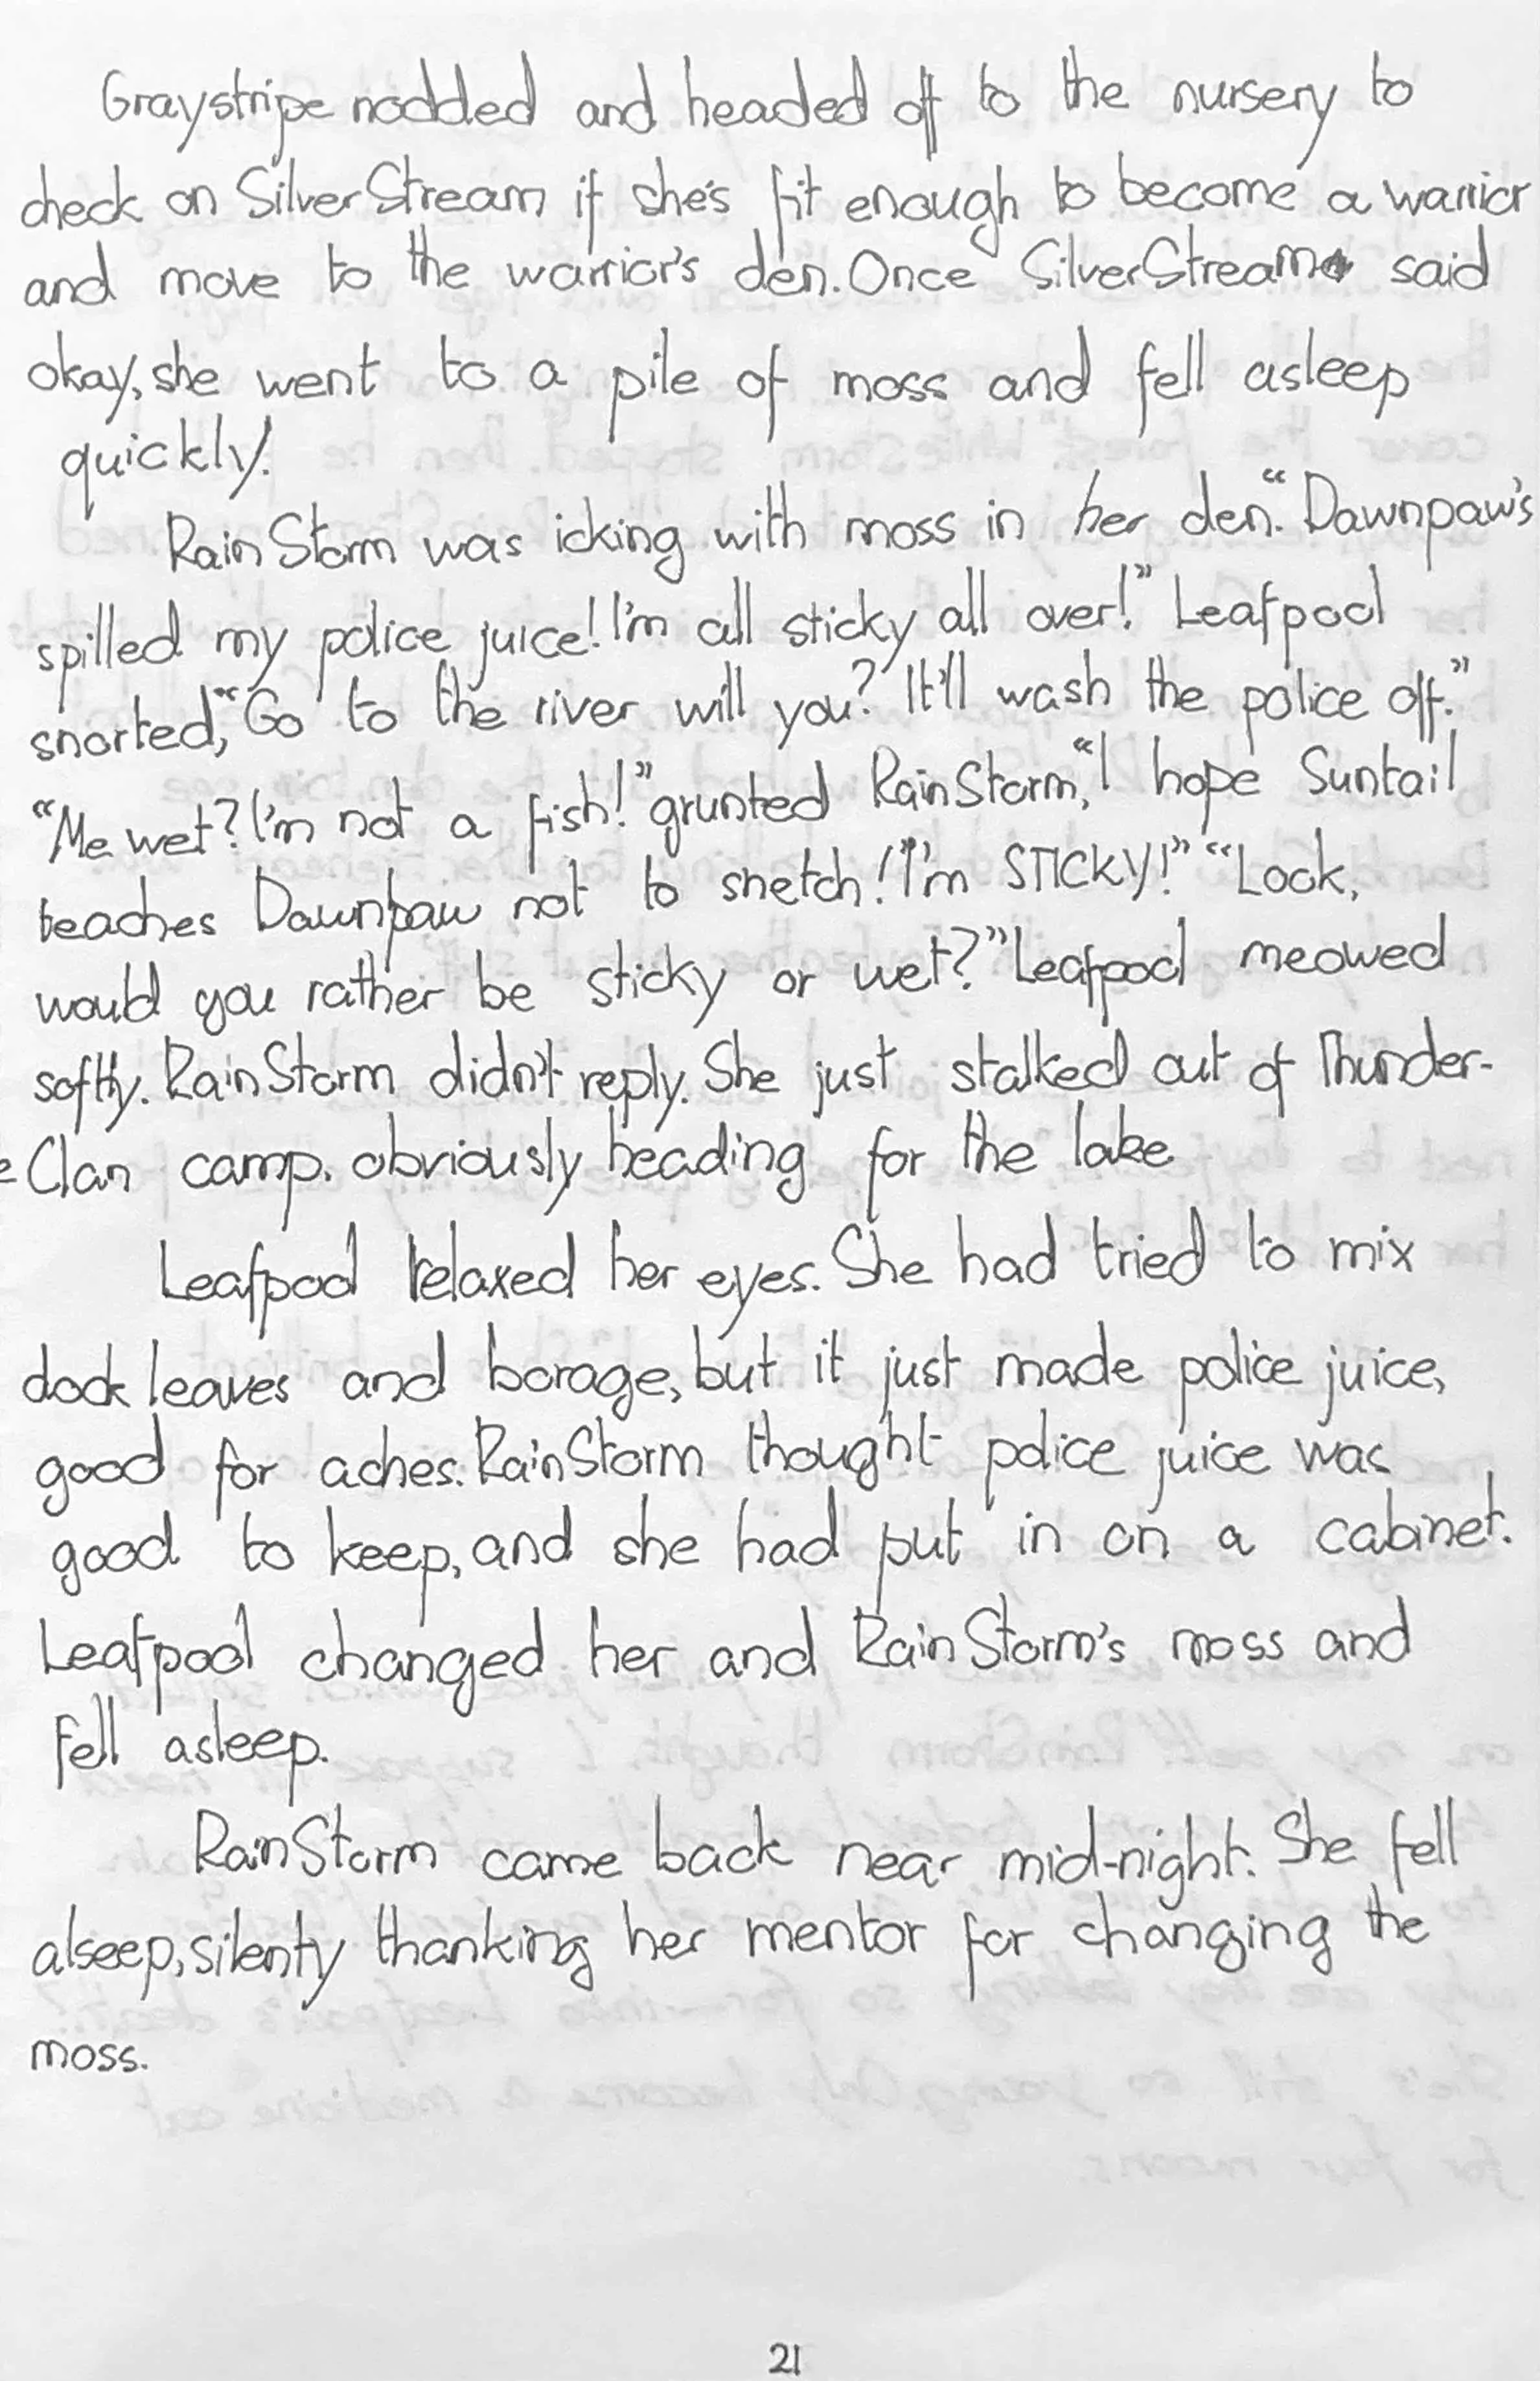 Graystripe nodded and headed off to the nursery to
check on SilverStream if she's fit enough to become a warrior
and move to the warrior's den. Once SilverStream said
okay, she went to a pile of moss and fell asleep
quickly.
RainStorm was icking with moss in her den. "Dawnpaw's
spilled my police juice! I'm all sticky all over!" Leafpool
snorted, "Go to the river will you? It'll wash the police off."
"Me wet? I'm not a fish!" grunted RainStorm, "I hope Suntail
teaches Dawnpaw not to snetch! I'm STICKY!" "Look,
would you rather be sticky or wet?" Leafpool meowed
softly. RainStorm didn't reply. She just stalked out of Thunder-
-Clan camp. obviously heading for the lake
Leafpool relaxed her eyes. She had tried to mix
dock leaves and borage, but it just made police juice,
good for aches. RainStorm thought police juice was
good to keep, and she had put in on a cabinet.
Leafpool changed her and RainStorm's moss and
fell asleep.
RainStorm came back near mid-night. She fell
alseep, silenty thanking her mentor for changing the
moss.
21